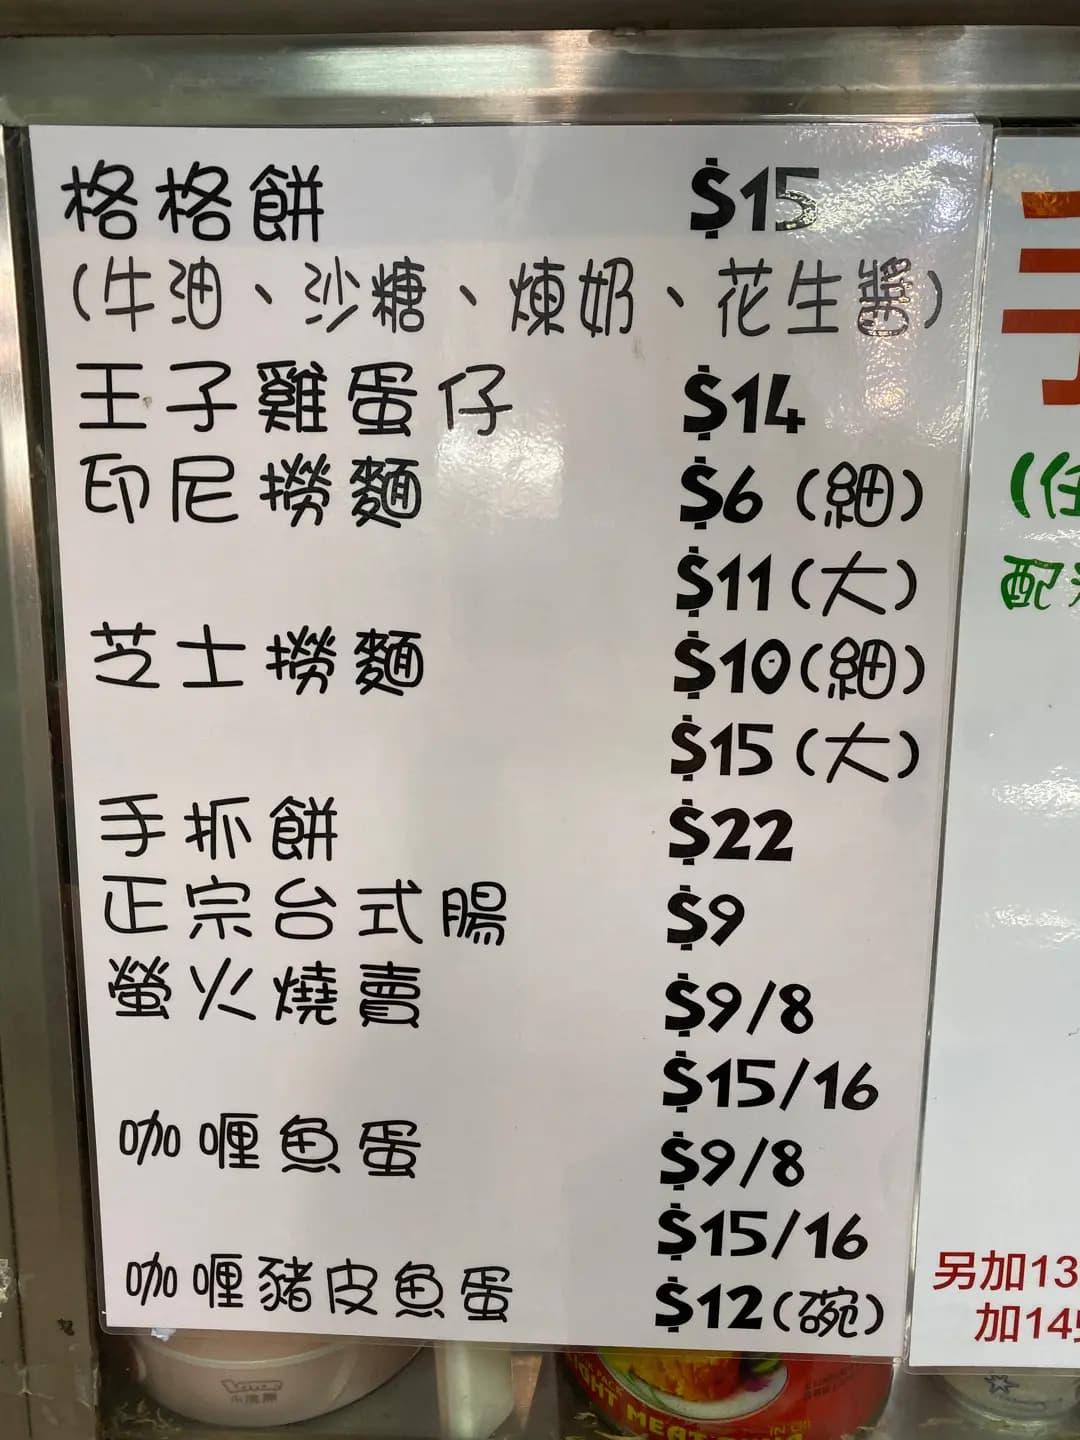 格格餅 $15
(牛油、沙糖、煉奶、花生醬)
王子雞蛋仔 $14
印尼撈麵 $6 (細)
$11 (大)
芝士撈麵 $10 (細)
$15 (大)
手抓餅 $22
正宗台式腸 $9
螢火燒賣 $9/8
$15/16
咖喱魚蛋 $9/8
$15/16
咖喱豬皮魚蛋 $12 (碗)
(任
配
另加13
加14